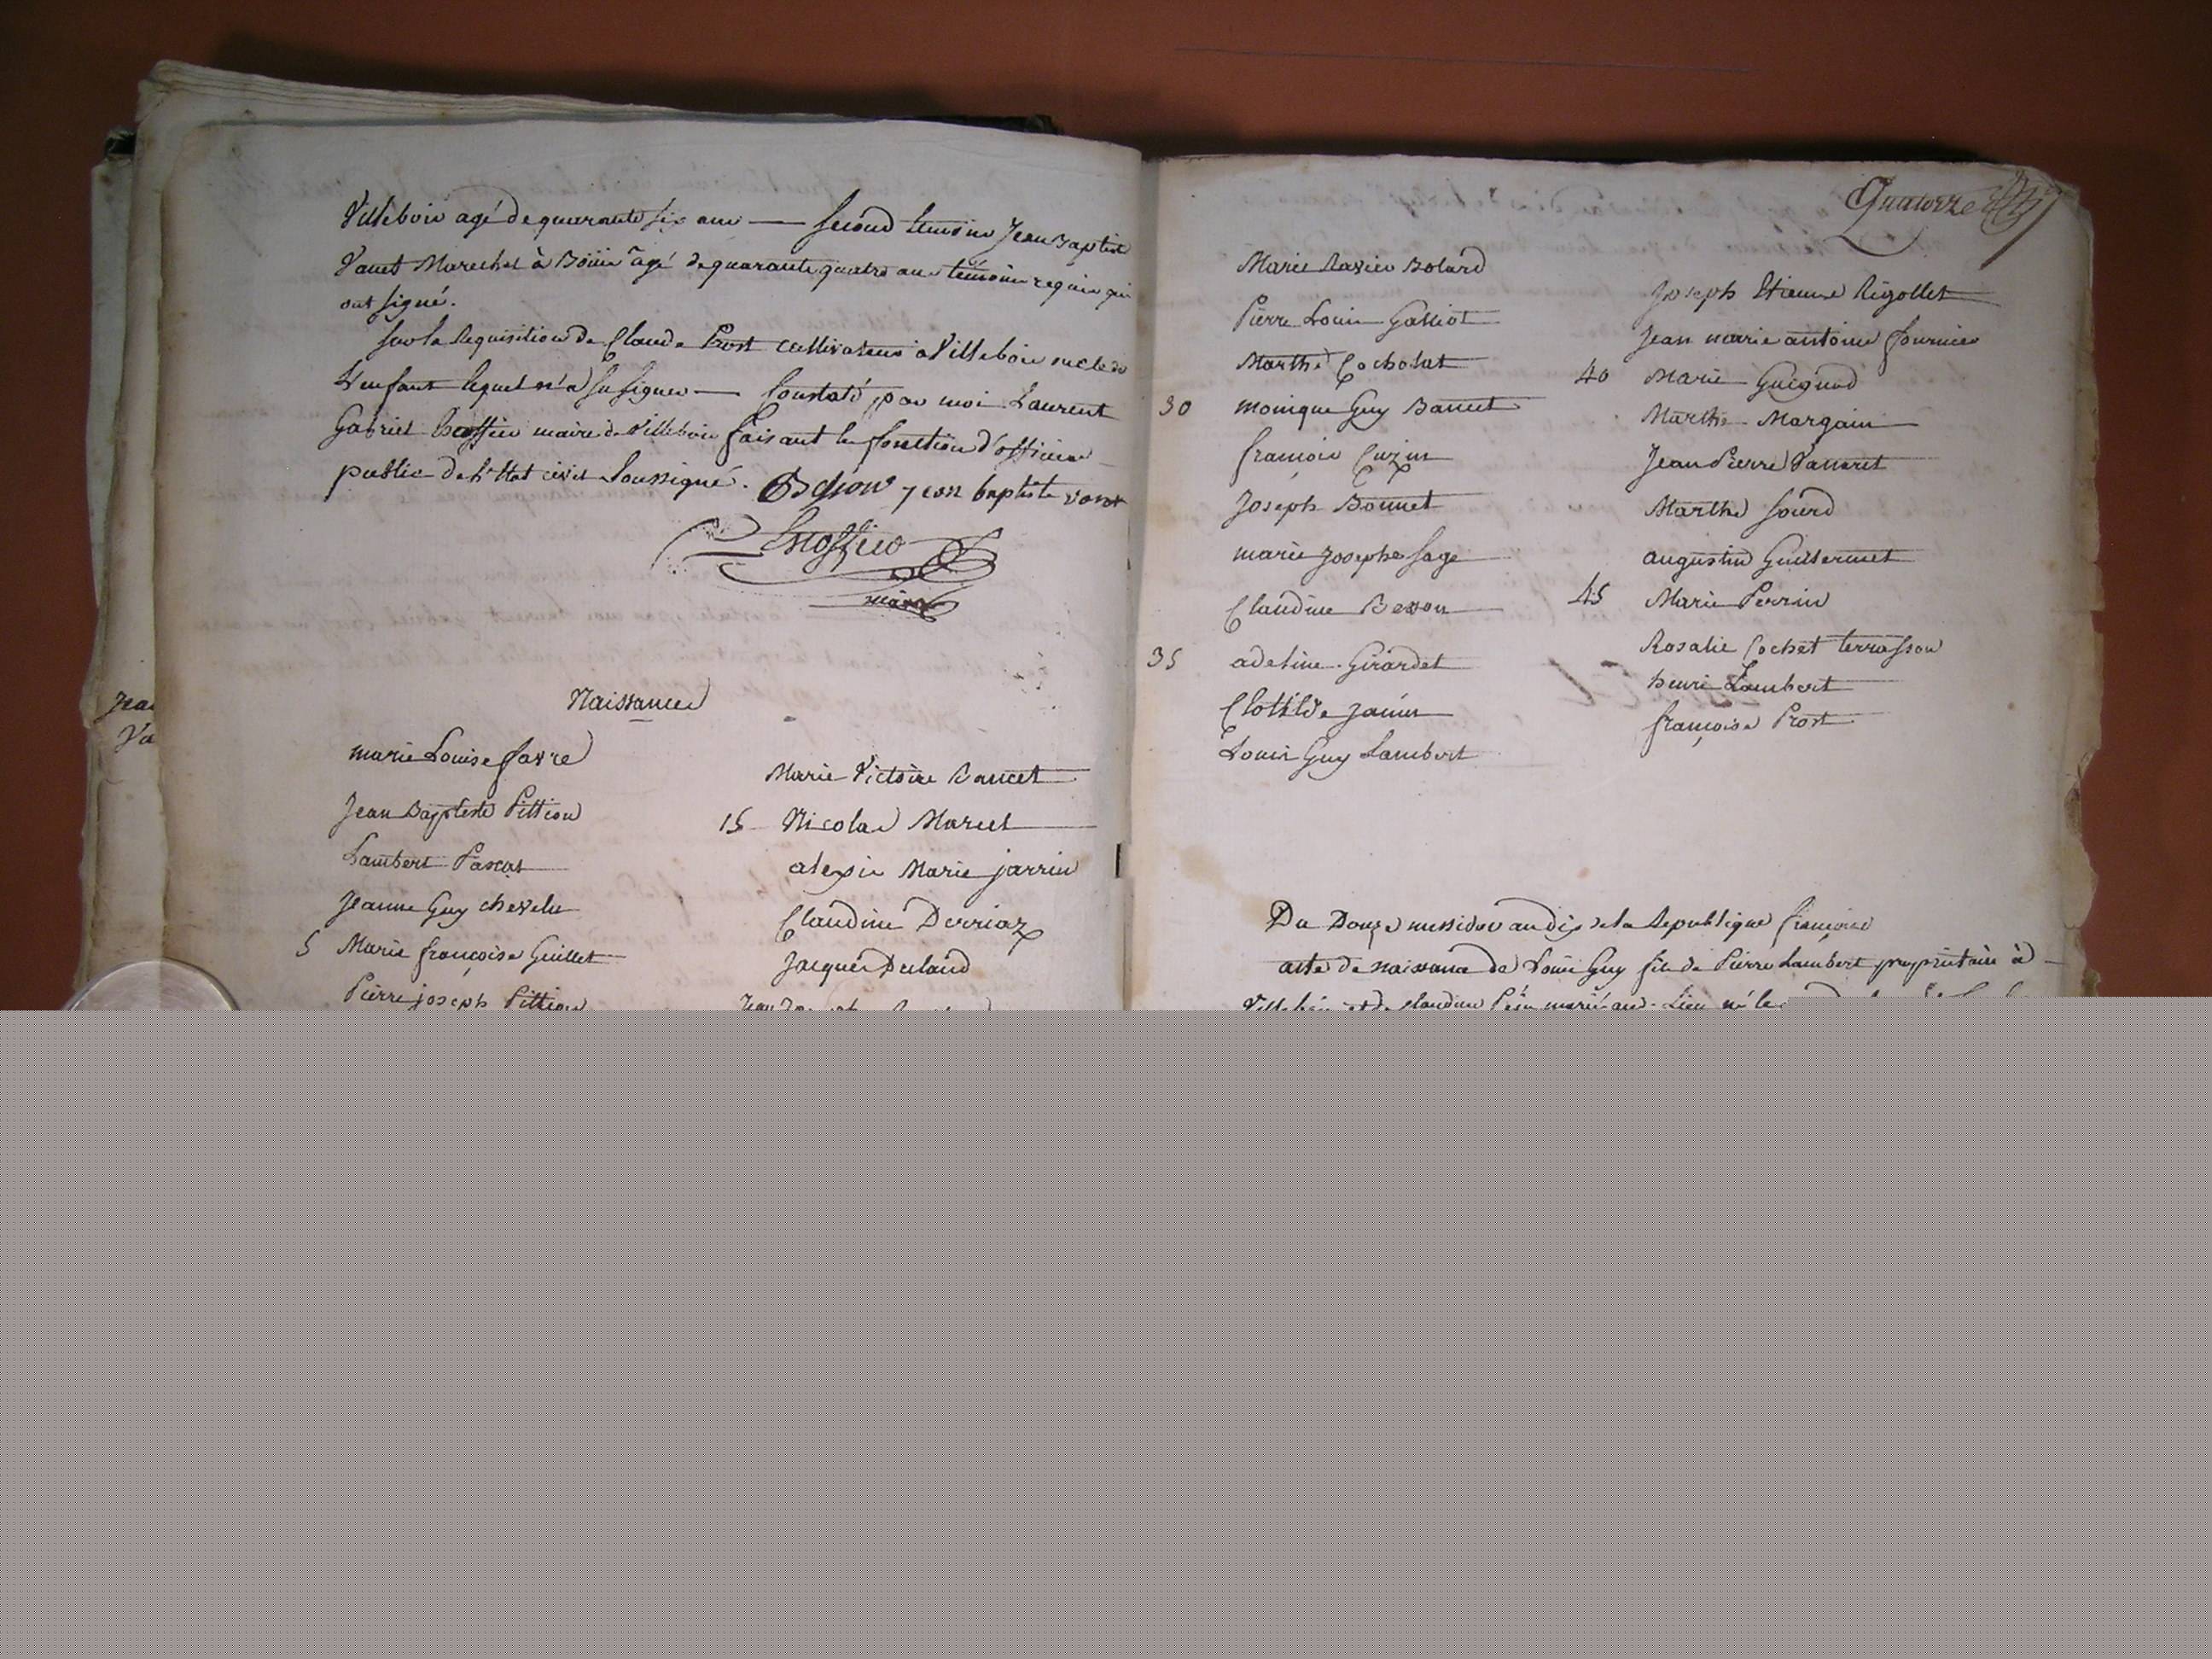 Villebois agé de quarante six ans — second temoins Jean Baptiste
Vanet Marechal à agé de quarante quatre ans temoins requis qui
ont signé.
sur la Requisition de Claude Prost cultivateur à Villebois oncle de
L'enfant lequel n'a su signer — Constaté par moi Laurent
Gabriel maire de Villebois faisant les fonctions d'officier
public de L'Etat civil Soussigné. jean baptiste
maire
Naissances
marie Louise favre
Jean Baptiste Pittion
Lambert Pascal
Jeanne Guy chevelu
5 Marie françoise Guillet
Pierre joseph Pittion
Marie Victoire
15 Nicolas Marcel
alexis Marie jarrin
Claudine Derriaz
Jacques
Jean
Quatorze
Marie Xavier Bolard
Pierre Louis Galliot
Marthe Cocholat
30 monique Guy
françois Cuzin
Joseph Bonnet
marie Josephe sage
Claudine Besson
35 adeline Girardet
Clotilde janin
Louis Guy Lambert
Joseph Etienne Rigollet
Jean marie antoine fournier
40 Marie Guignod
Marthe Margain
Jean Pierre
Marthe sourd
augustin Guillermet
45 Marie Perrin
Rosalie Cochet terrasson
henri Lambert
françoise Prost
Du Douze messidor an dix de la Republique françoise
acte de naissance de Louis Guy fils de Pierre Lambert propriétaire à
Villebois et de Claudine marié au Lieu né le